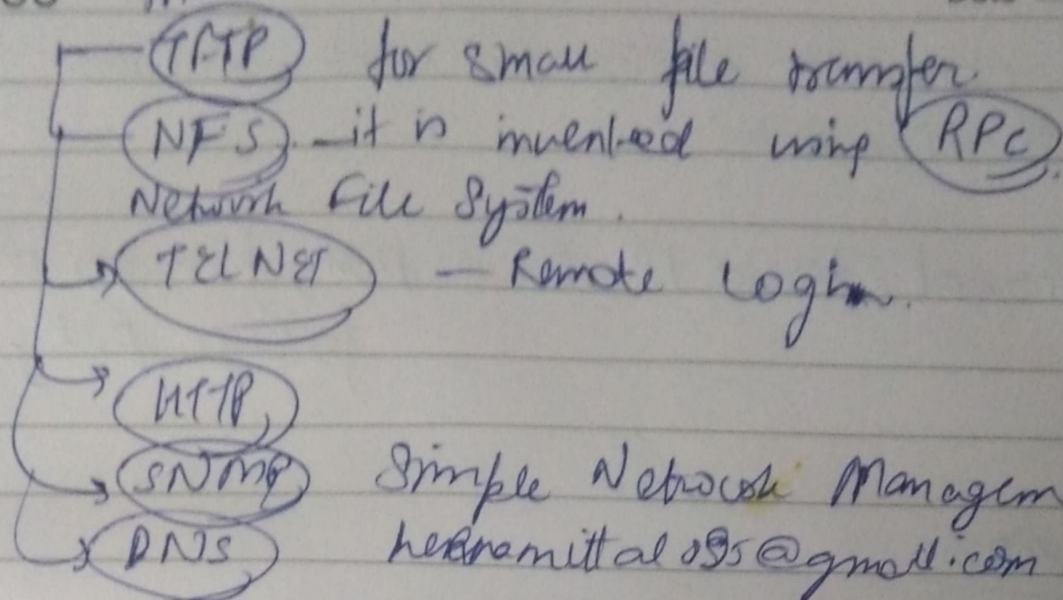 TFTP for small file transfer.
NFS - it is invented using RPC.
Network File System.
TELNET - Remote Login.
HTTP
SNMP Simple Network Managem
DNS @gmail.com